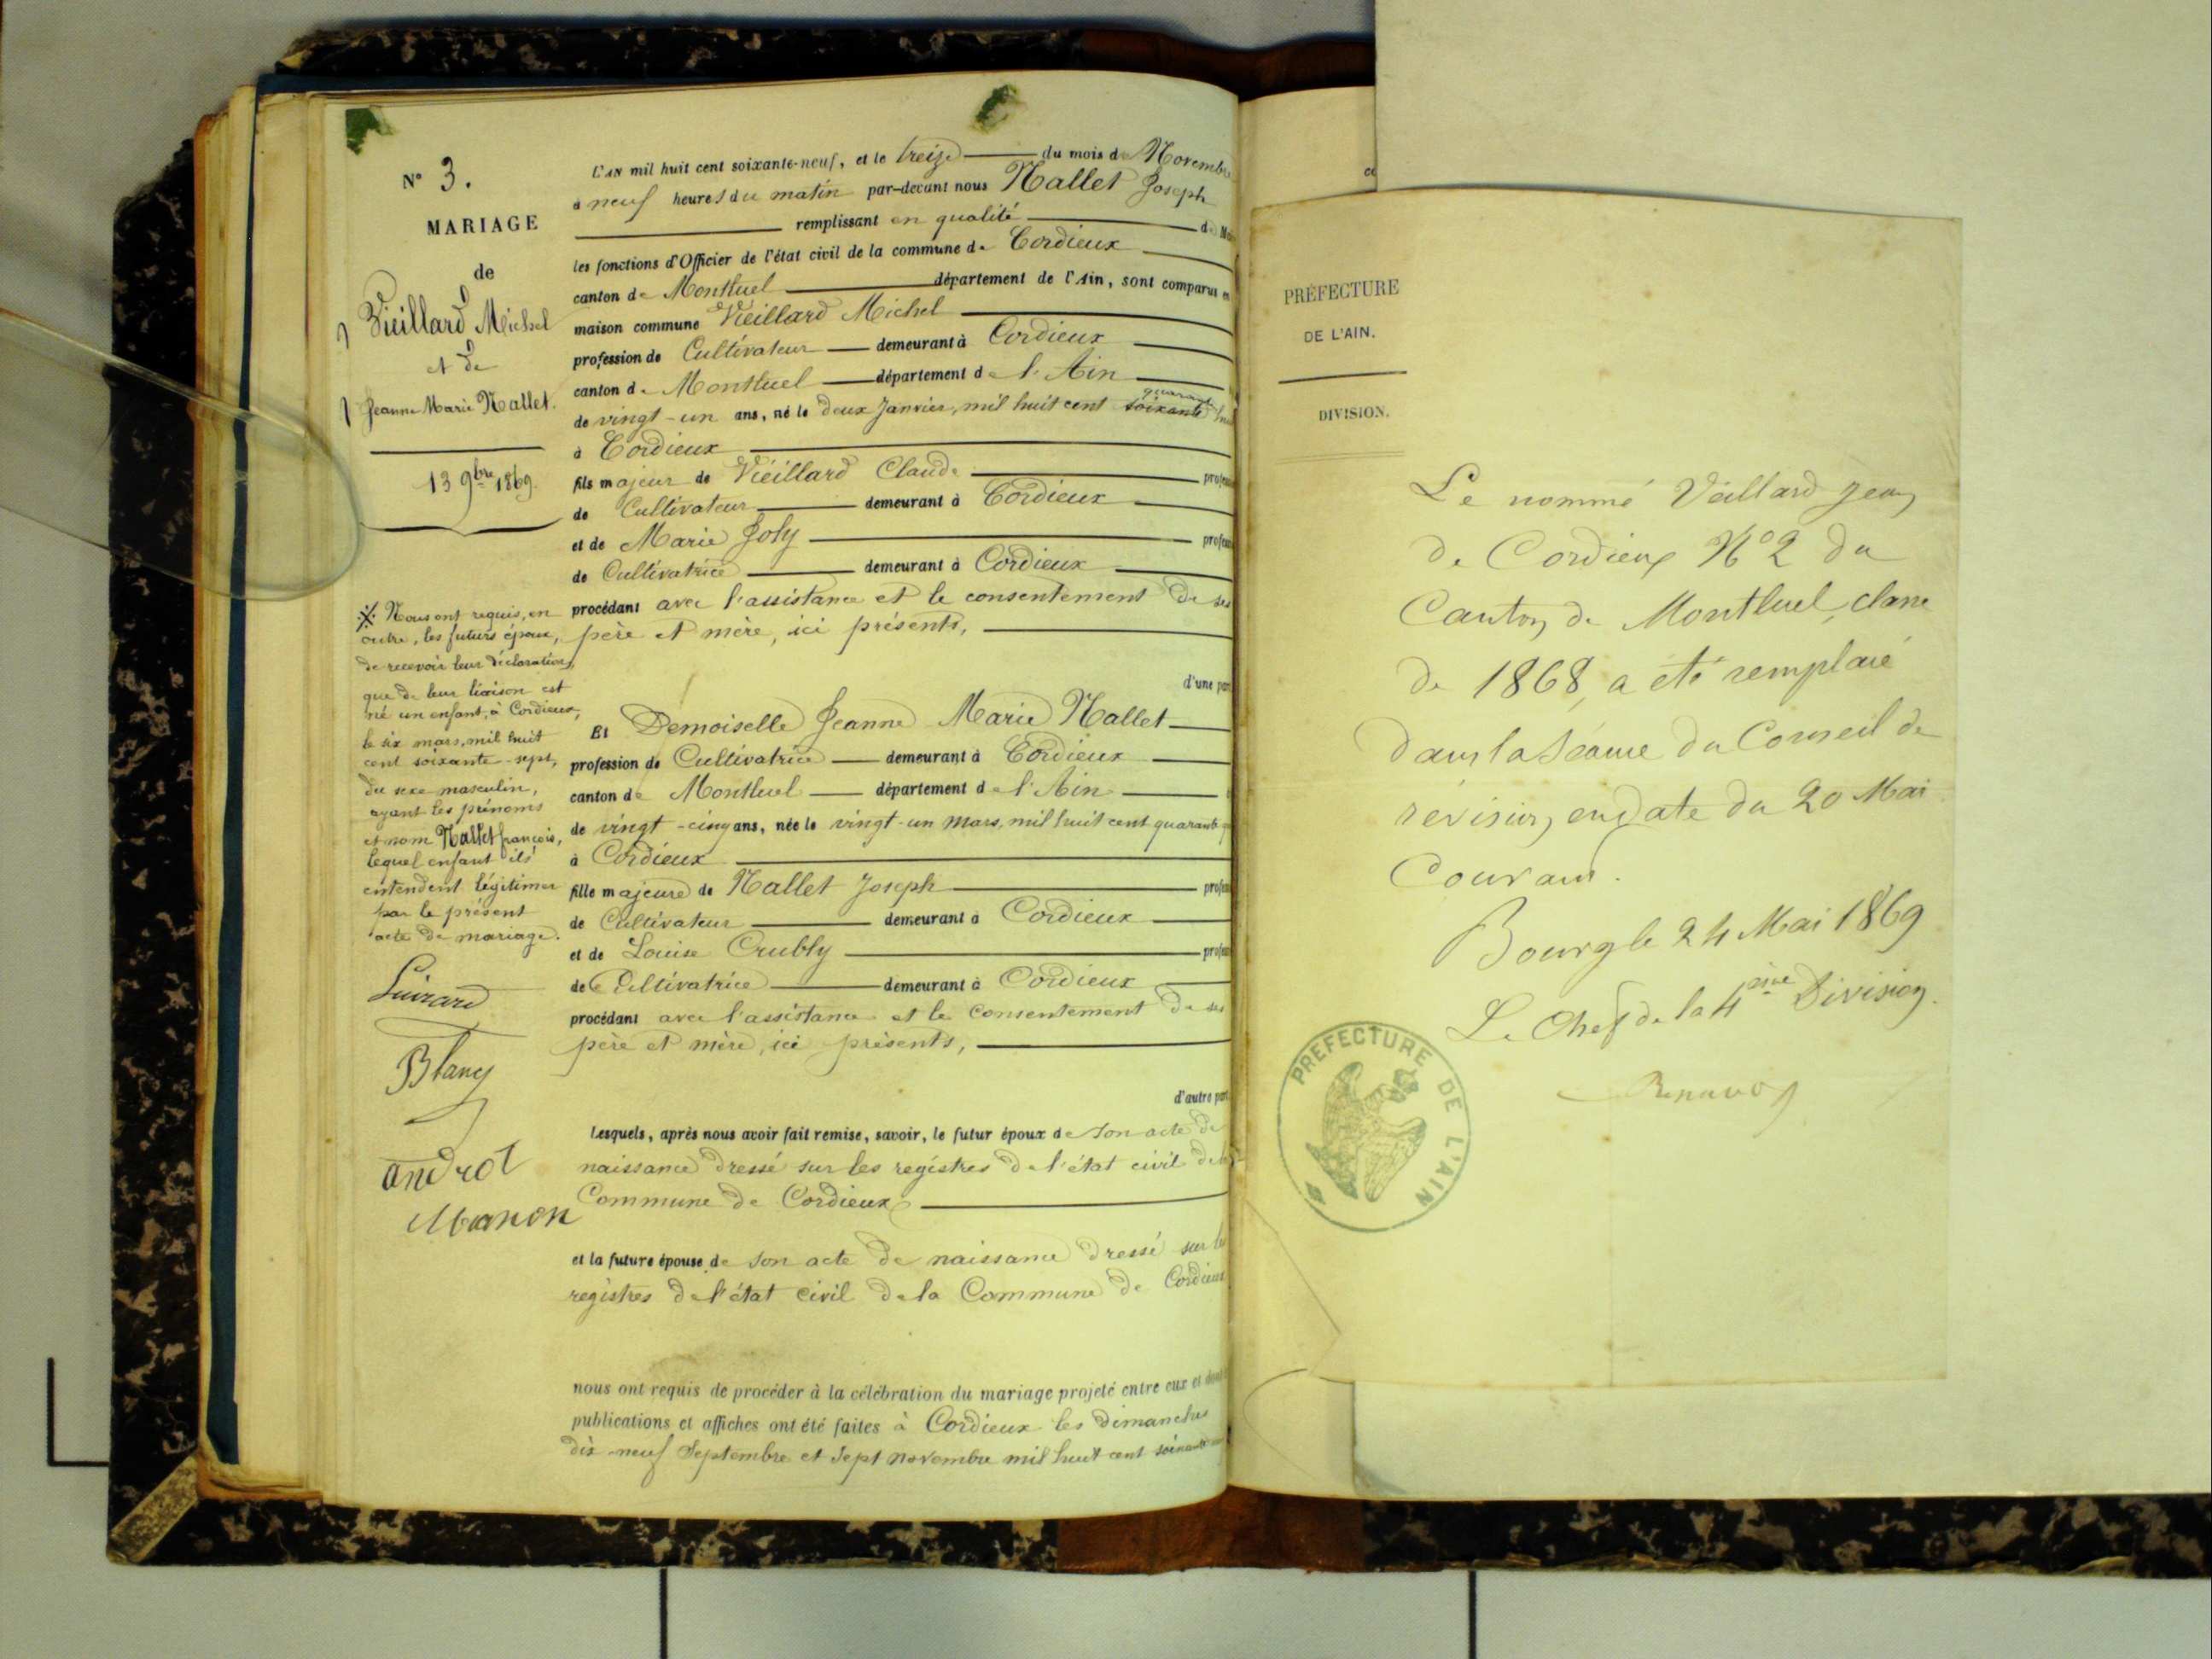 N° 3.
MARIAGE
de
Vieillard Michel
et de
Jeanne Marie Nallet.
13 9bre 1869
L'AN mil huit cent soixante-neuf, et le treize du mois de Novembre
à neuf heures du matin par-devant nous Nallet Joseph
remplissant en qualité de
les fonctions d'Officier de l'état civil de la commune de Cordieux
canton de Montluel département de l'Ain, sont comparus en
maison commune Vieillard Michel
profession de Cultivateur demeurant à Cordieux
canton de Montluel département de l'Ain
quarante
de vingt-un ans, né le deux Janvier, mil huit cent soixante huit
à Cordieux
fils majeur de Vieillard Claude
de Cultivateur demeurant à Cordieux
et de Marie Joly
de Cultivatrice demeurant à Cordieux
procédant avec l'assistance et le consentement de ses
père et mère, ici présents,
d'une part
Et Demoiselle Jeanne Marie Nallet
profession de Cultivatrice demeurant à Cordieux
canton de Montluel département de l'Ain
de vingt-cinq ans, née le vingt-un mars, mil huit cent quarante
à Cordieux
fille majeure de Nallet Joseph
de Cultivateur demeurant à Cordieux
et de Louise Crubly
de Cultivatrice demeurant à Cordieux
procédant avec l'assistance et le consentement de ses
père et mère, ici présents,
d'autre part
Lesquels, après nous avoir fait remise, savoir, le futur époux de son acte de
naissance dressé sur les registres de l'état civil de la
Commune de Cordieux
et la future épouse de son acte de naissance dressé sur les
registres de l'état civil de la Commune de Cordieux
nous ont requis de procéder à la célébration du mariage projeté entre eux et dont
publications et affiches ont été faites à Cordieux les dimanches
dix-neuf Septembre et sept novembre mil huit cent soixante
Nous ont requis, en
outre, les futurs époux,
de recevoir leur déclaration,
que de leur liaison est
né un enfant, à Cordieux,
le six mars, mil huit
cent soixante-sept,
du sexe masculin,
ayant les prénoms
et nom Nallet françois,
lequel enfant ils
entendent légitimer
par le présent
acte de mariage.
Blanc
androt
Manon
PRÉFECTURE
DE L'AIN.
DIVISION.
Le nommé Véillard Jean
de Cordieux N° 2 du
Canton de Montluel, classe
de 1868, a été remplacé
dans la Séance du Conseil de
révision, en date du 20 Mai
Courant.
Bourg le 24 Mai 1869
Le Chef de la 4ème Division.
PREFECTURE DE L'AIN